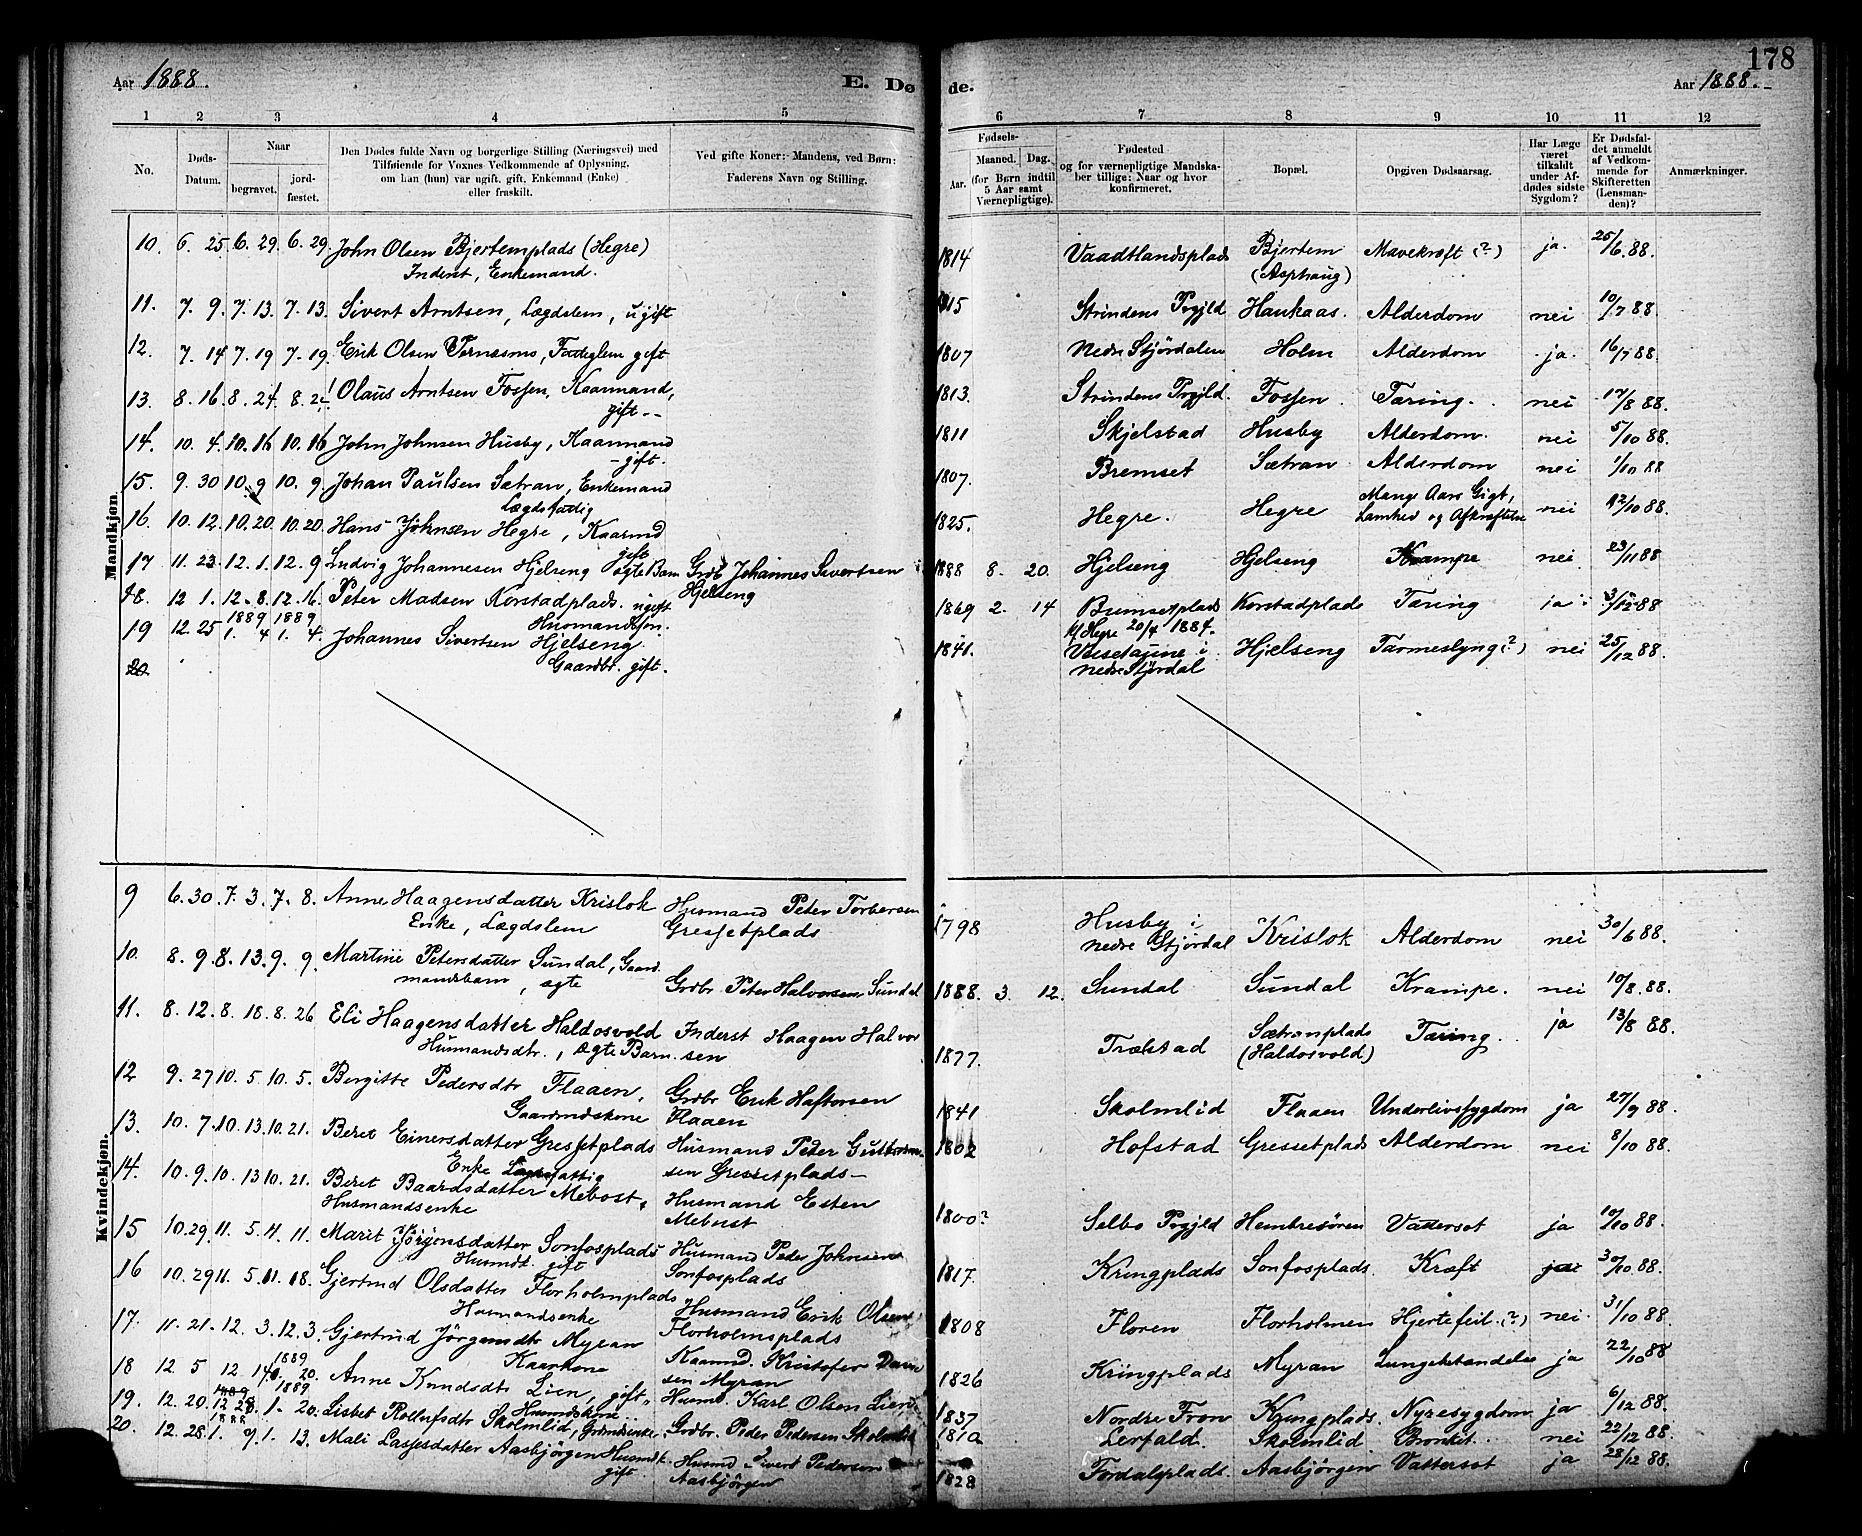 Aar 1888.
E. Dø
de.
Aar 1888.
178
1 2 3 4 5 6 7 8 9 10 11 12
No.
Døds-
Datum.
Naar
begravet.
jord-
fæstet.
Den Dødes fulde Navn og borgerlige Stilling (Næringsvei) med
Tilføiende for Voxnes Vedkommende af Oplysning,
om han (hun) var ugift, gift, Enkemand (Enke)
eller fraskilt.
Ved gifte Koner: Mandens, ved Børn:
Faderens Navn og Stilling.
Fødsels-
Aar.
Maaned. Dag.
(for Børn indtil
5 Aar samt
Værnepligtige).
Fødested
og for værnepligtige Mandska-
ber tillige: Naar og hvor
konfirmeret.
Bopæl.
Opgiven Dødsaarsag.
Har Læge
været
tilkaldt
under Af-
dødes sidste
Sygdom?
Er Dødsfal-
det anmeldt
af Vedkom-
mende for
Skifteretten
(Lensman-
den)?
Anmærkninger.
Mandkjøn.
10. 6. 25. 6. 29. 6. 29. John Olsen Bjertemplads (Hegre) 1814 Vaadtlandsplads Bjertem Mavekræft (?) ja. 25/6. 88.
Inderst, Enkemand. (Asphaug)
11. 7. 9. 7. 13. 7. 13. Sivert Arntsen, Lægdslem, ugift 1815 Strindens Prgjld Haukaas. Alderdom nei 10/7 88.
12. 7. 14 7. 19 7. 19. Erik Olsen Fattiglem gift 1807 Nedre Stjørdalen Holm Alderdom ja. 16/7 88.
13. 8. 16. 8. 24 8. 24 Olaus Arntsen Fossen, Kaarmand, 1813. Strindens Prgjld. Fossen. Tæring. nei 17/8 88.
gift.
14. 10. 4. 10. 16 10. 16 John Johnsen Husby, Kaarmand 1811 Skjelstad Husby Alderdom. nei 5/10 88.
gift.
15. 9. 30 10. 9 10. 9. Johan Paulsen Sætran, Enkemand 1807. Bremset Sætran Alderdom nei 1/10 88
Lægdsfattig
16. 10. 12. 10. 20. 10. 20. Hans Johnsen Hegre, Kaarmd 1825. Hegre. Hegre Mange Aars Gigt, nei 12/10 88.
gift Lamhed og Afkræftelse
17 11. 23. 12. 1. 12. 9 Ludvig Johannesen Hjelseng ægte Barn Grdbr Johannes Sivertsen 1888 8. 20. Hjelseng Hjelseng Krampe nei 23/11 88
Hjelseng
18. 12 1. 12. 8. 12. 16. Peter Madsen Korstadplads. ugift 1869 2. 14 Bremsetplads Korstadplads Tæring ja 3/12 88
Husmandssøn. k/ Hegre 20/4 1884.
19 12. 25 1889 1. 4 1889 1. 4. Johannes Sivertsen Hjelseng 1841. i Hjelseng Tarmeslyng (?) nei 25/12 88.
Gaardbr. gift. nedre Stjørdal
20
Kvindekjøn.
9 6. 30. 7. 3. 7. 8. Anne Haagensdatter Krislok Husmand Peter Torbersen 1798 Husby i Krislok Alderdom nei 30/6 88.
Enke, Lægdslem Gressetplads nedre Stjørdal
10. 8. 9. 8. 13. 9. 9. Martine Petersdatter Sundal, Gaard Grdbr Peter Halvorsen Sundal 1888. 3. 12. Sundal Sundal Krampe. nei 10/8. 88.
mandsbarn, ægte
11. 8. 12. 8. 18. 8. 26 Eli Haagensdatter Haldosvold Inderst Haagen Halvor 1877. Trælstad Sætranplads Tæring. ja 13/8 88.
Husmandsdtr., ægte Barn sen (Haldosvold)
12 9. 27 10. 5. 10. 5. Bergitte Pedersdtr Flaaen, Grdbr Erik Haftorsen 1841 Skolmlid Flaaen Underlivssygdom ja 27/9 88.
Gaardmdskone Flaaen
13. 10. 7. 10. 13. 10. 21. Beret Einersdatter Gressetplads Husmand Peder Guttorm 1802 Hofstad Gressetplads Alderdom nei 8/10 88.
Enke sen Gressetplads
14. 10. 9. 10. 13 10. 21. Beret Baardsdatter Mebost, Husmand Esten 1800? Selbo Prgjld Hembresøren Vattersot ja 10/10 88.
Husmandsenke Mebust
15 10. 29 11. 5. 11. 11. Marit Jörgensdatter Sonfosplads Husmand Peder Johnsen 1817. Kringplads Sonfosplads. Kræft 30/10. 88.
Husmdk. gift Sonfosplads
16 10. 29 11. 5. 11. 18. Gjertrud Olsdatter Florholmplads Husmand Erik Olsen 1808 Floren Florholmen Hjertefeil. (?) nei. 31/10 88.
Husmandsenke Florholmsplads
17. 11. 21. 12. 3. 12. 3. Gjertrud Jörgensdtr Myran Kaarmd. Kristofer 1826 Kringplads Myran Lungebetændelse ja 22/10 88
Kaarkone sen Myran
18 12. 5 12. 14. 1889 1. 20. Anne Knudsdtr Lien, gift, Husmd. Karl Olsen Lien 1837 Nordre Fron Kringplads. Nyresygdom ja 6/12 88.
Husmdskone
19. 12. 20. 12 28. 1889 1. 20. Lisbet Rollufsdtr Skolmlid, Grdmdsenke. Grdbr. Peder Pedersen Skolmlid 1810 Lerfald. Skolmlid Bronket. nei 22/12 88.
20. 12. 28 1. 9. 1. 13. Mali Lassesdatter Aasbjörgen Husmdk. Husmd Sivert Pedersen 1828 Fordalsplads. Aasbjörgen Vattersot ja 28/12 88.
gift. Aasbjörgen